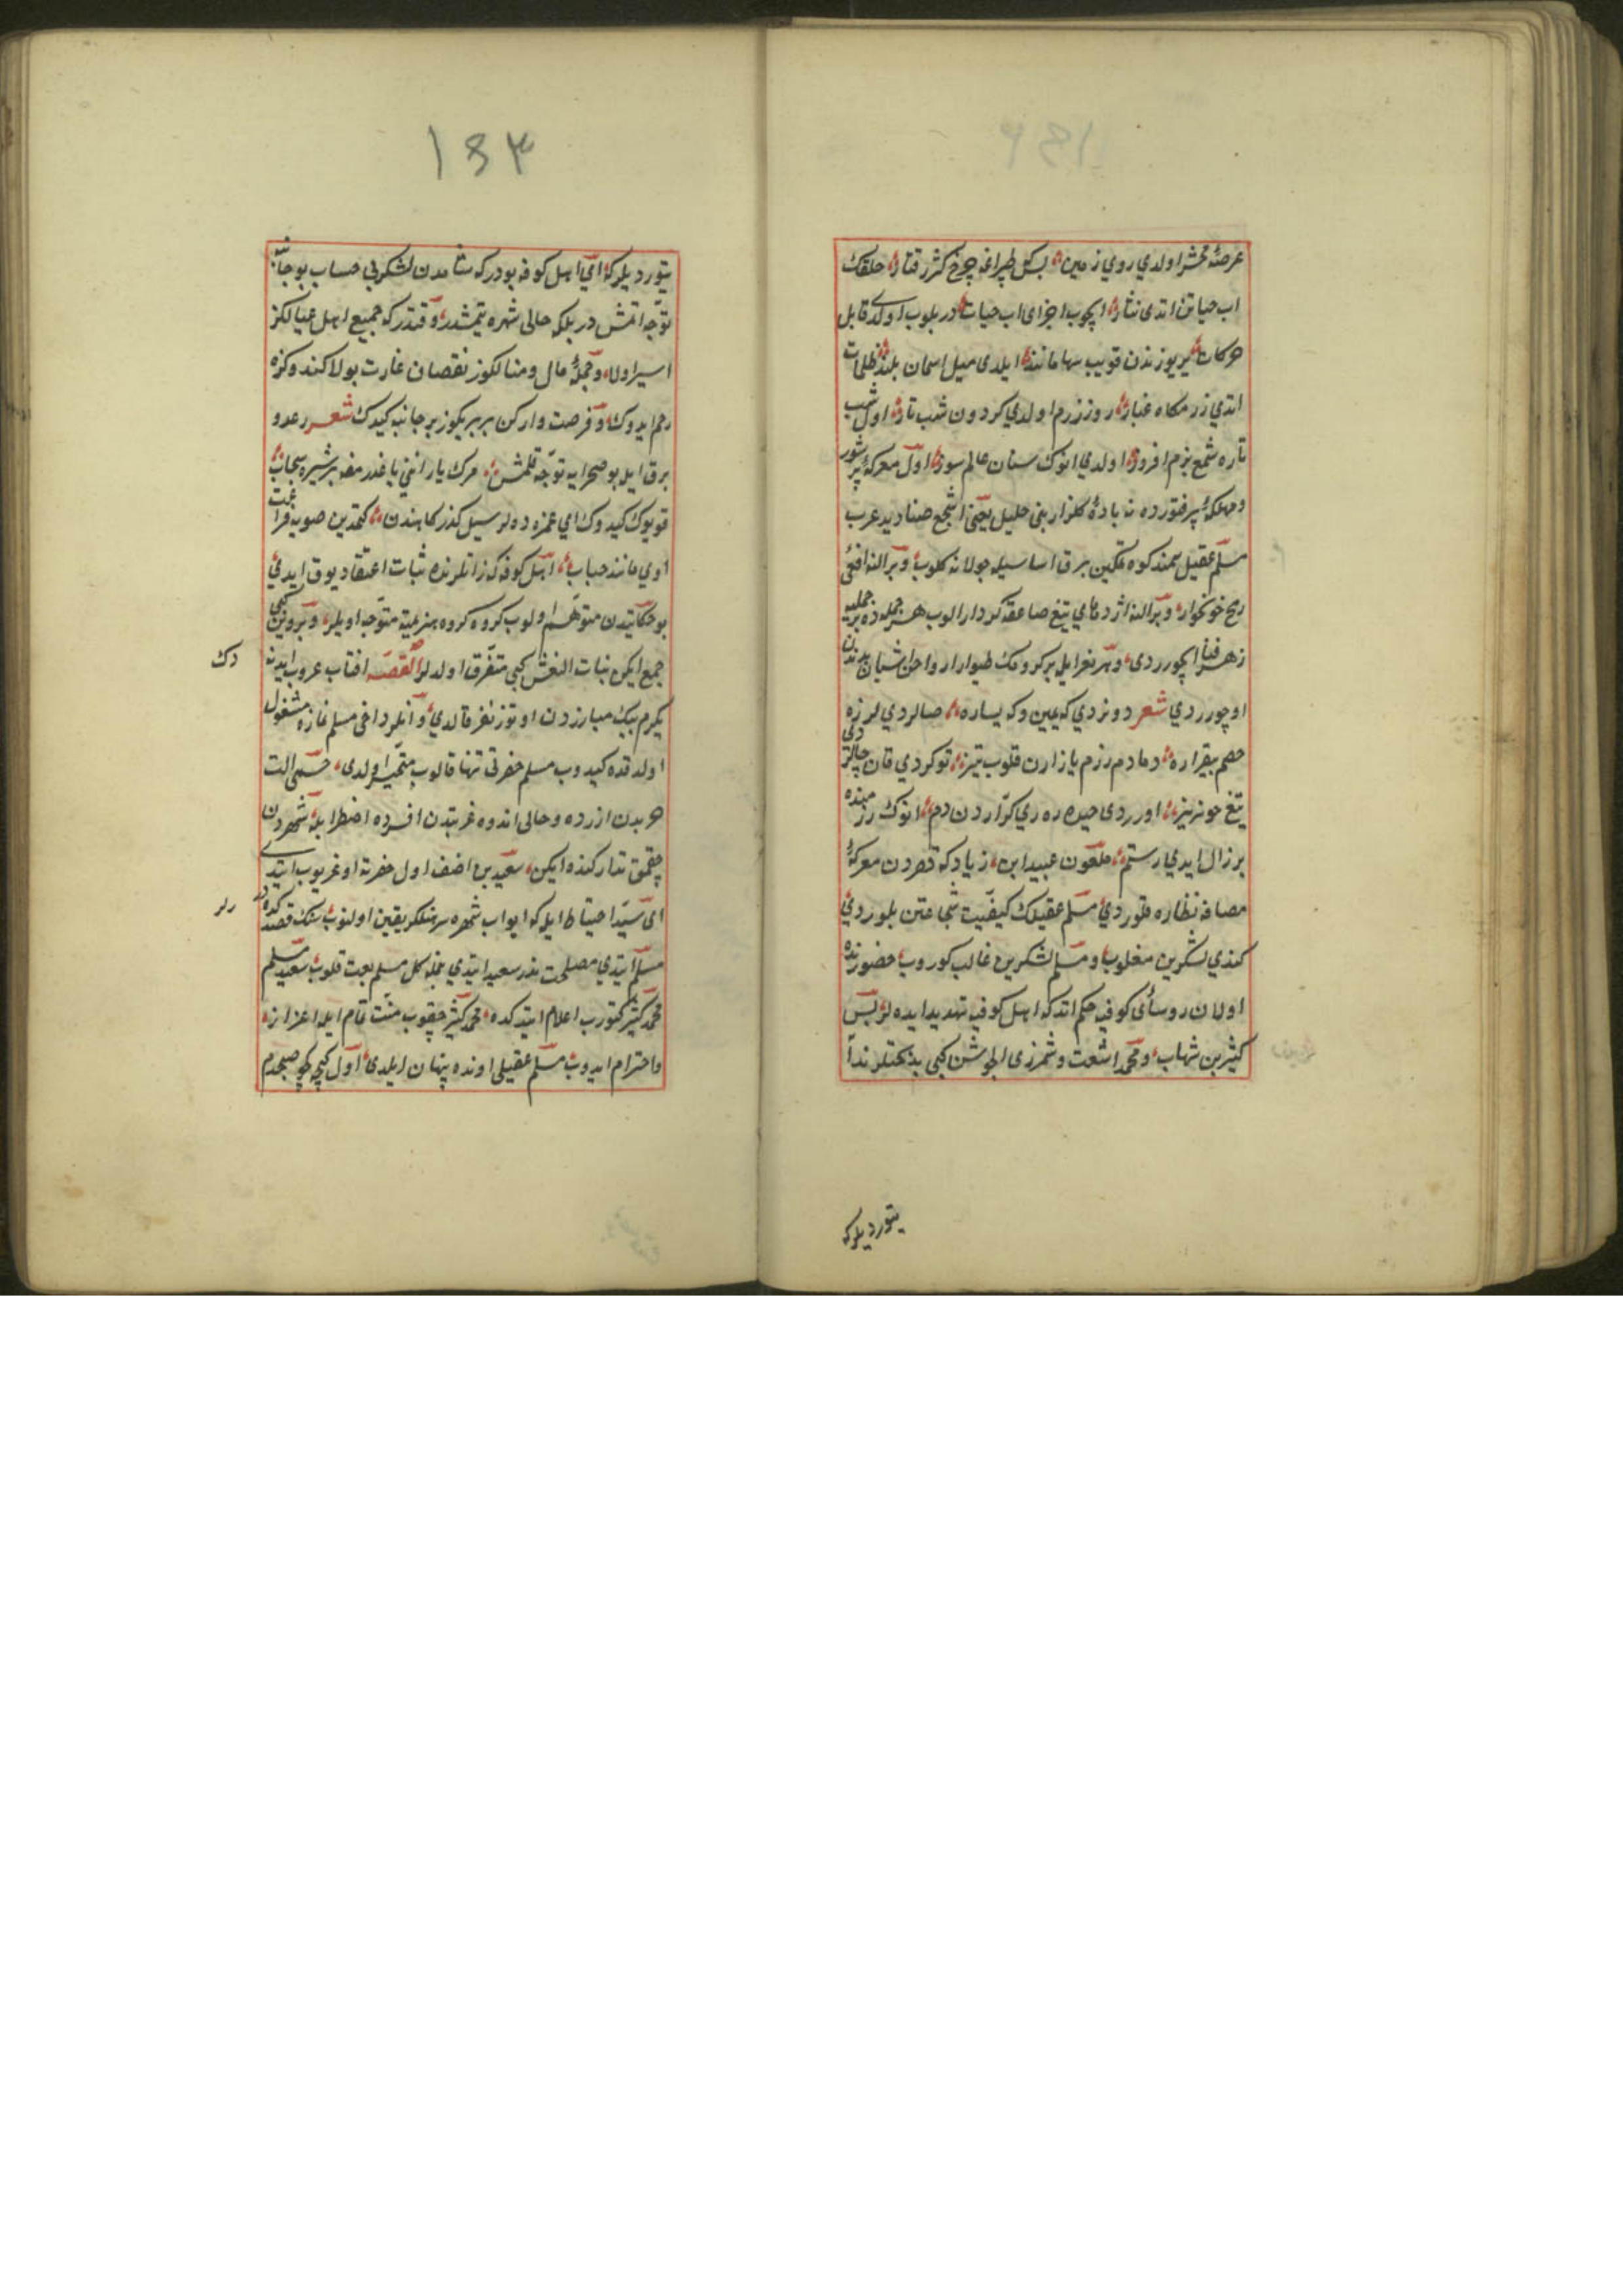 عرصۀ محشر اولدي روي زمين بسكه طپراغه چرخ كژرفتار خلقك
اب حياتن اتدى نثار ايچوب اجزاى اب حيات دريلوب اولدى قابل
حركات ير يوزندن قويب سها مانند ايلدى ميل اسمان بلند ظلمات
اتدي رزمكاه غبار روز رزم اولدي كردون شب تار اول شب
تاره شمع بزم افروز اولدي انوك سنان عالم سوز اول معركۀ پرشور
ومهلكۀ پرفتورده نه بادۀ كلزار بنى خليل يعنى اشجع صناديد عرب
مسلم عقيل سمند كوه تمكين برق اساسيله جولانه كلوب وبر النه افعى
رمح خونخوار وبر النه اژدهاي تيغ صاعقه كردار الوب هر حمله ده بر
زهر فنا ايچورردى وهر نعر ايله بر كروهك طيوار ارواحن اشيان بدندن
اوچورردي شعر دونردي كه يمين وكه يساره صالردي لرزه
خصم بيقراره دمادم رزم بازارن قلوب تيز توكردي قان چالر
تيغ خونريز اورردى حيدره ري كرّاردن دم انوك رزمنده
بر زال ايدي رستم ملعون عبيد ابن زياد كه قصردن معركۀ
مصافه نظاره قلوردي مسلم عقيلك كيفيت شجاعتن بلوردي
كندي لشكرين مغلوب ومسلم لشكرين غالب كوروب حضورنده
اولان رؤساى كوفيه حكم اتدكه اهل كوفيه تهديد ايده لر پس
كثير بن شهاب ومحمد اشعث وشمر ذى الجوشن كبى بدبختلر ندا
يتورديلركه
١٣٣
يتورديلركه اى اهل كوفه بودركه شامدن لشكر بى حساب بو جانبه
توجه اتمش در بلكه حالى شهره يتمشدر وقتدركه جميع اهل عيالكز
اسير اولا وجملۀ مال ومنالكوز نقصان غارت بولا كندوكزه
رحم ايدوك وفرصت واركن بر بر يكوز بر جانبه كيدك شعر رعد و
برق ايله بو صحرايه توجه قلمش مرك يارانني ياغدرمغه بر شيره سحاب
قويوك كيدوك اي غمزده لر سيل كذركاهندن
اوي مانند حباب اهل كوفه كه ذاتلرنده ثبات اعتقاد يوق ايدي
بو حكايتدن متوهم اولوب كروه كروه هزيمته متوجه اوليلر وپروين كبى
جمع ايكن بنات النعش كبى متفرق اولدلر القصه افتاب غروب ايدنه دك
يكرم بيك مبارزدن اوتوز نفر قالدي وانلر داخى مسلم نمازه مشغول
اولدقده كيدوب مسلم حضرتى تنها قالوب متحير اولدى جسمى الت
حربدن ازرده وحالى اندوه غربتدن افسرده اضطرابله شهردن
چقمق تداركنده ايكن سعيد بن احنف اول حضرته اوغريوب ايتدى
اى سيد احتياط ايله كه ابواب شهره سرهنكلر يقين اولنوب سنك قصدكده درلر
مسلم ايتدي مصلحت ندر سعيد ايتدي بنمله كل مسلم بعت قلوب سعيد مسلم
محمد كثيره كتورب اعلام ايتدكده محمد كثير چقوب منت تمام ايله اعزاز
واحترام ايدوب مسلم عقيلى اونده پنهان ايلدى اول كيجه كه صبحدم